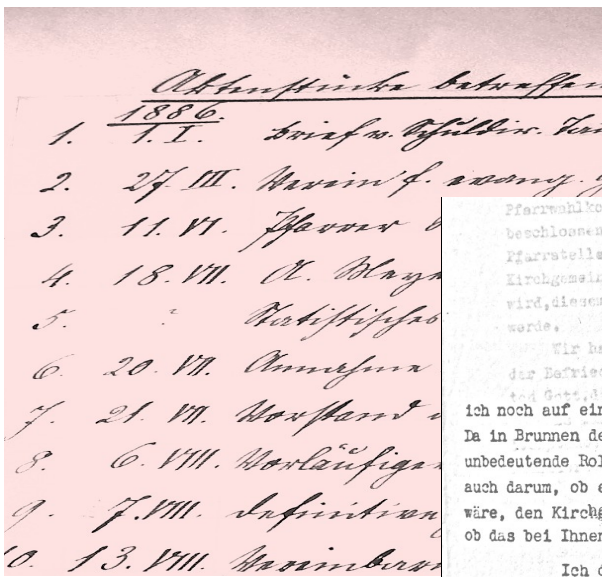 Aktenstücke betreffen
1886.
1. 1. I. Brief v. Schuldir.
2. 27. III. Verein f. evang.
3. 11. VI. Pfarrer
4. 18. VII. A. Meye
5. ? Statistisches
6. 20. VII. Annahme
7. 21. VII. Vorstand
8. 6. VIII. Vorläufige
9. 7. VIII. definitive
10. 13. VIII. Vereinbar
Pfarrwahlko
beschlossen
Pfarrstelle
Kirchgemein
wird,diesem
werde.
Wir ha
der Befried
Gott,d
ich noch auf ein
Da in Brunnen de
unbedeutende Rol
auch darum, ob e
wäre, den Kirchg
ob das bei Ihnen
Ich d